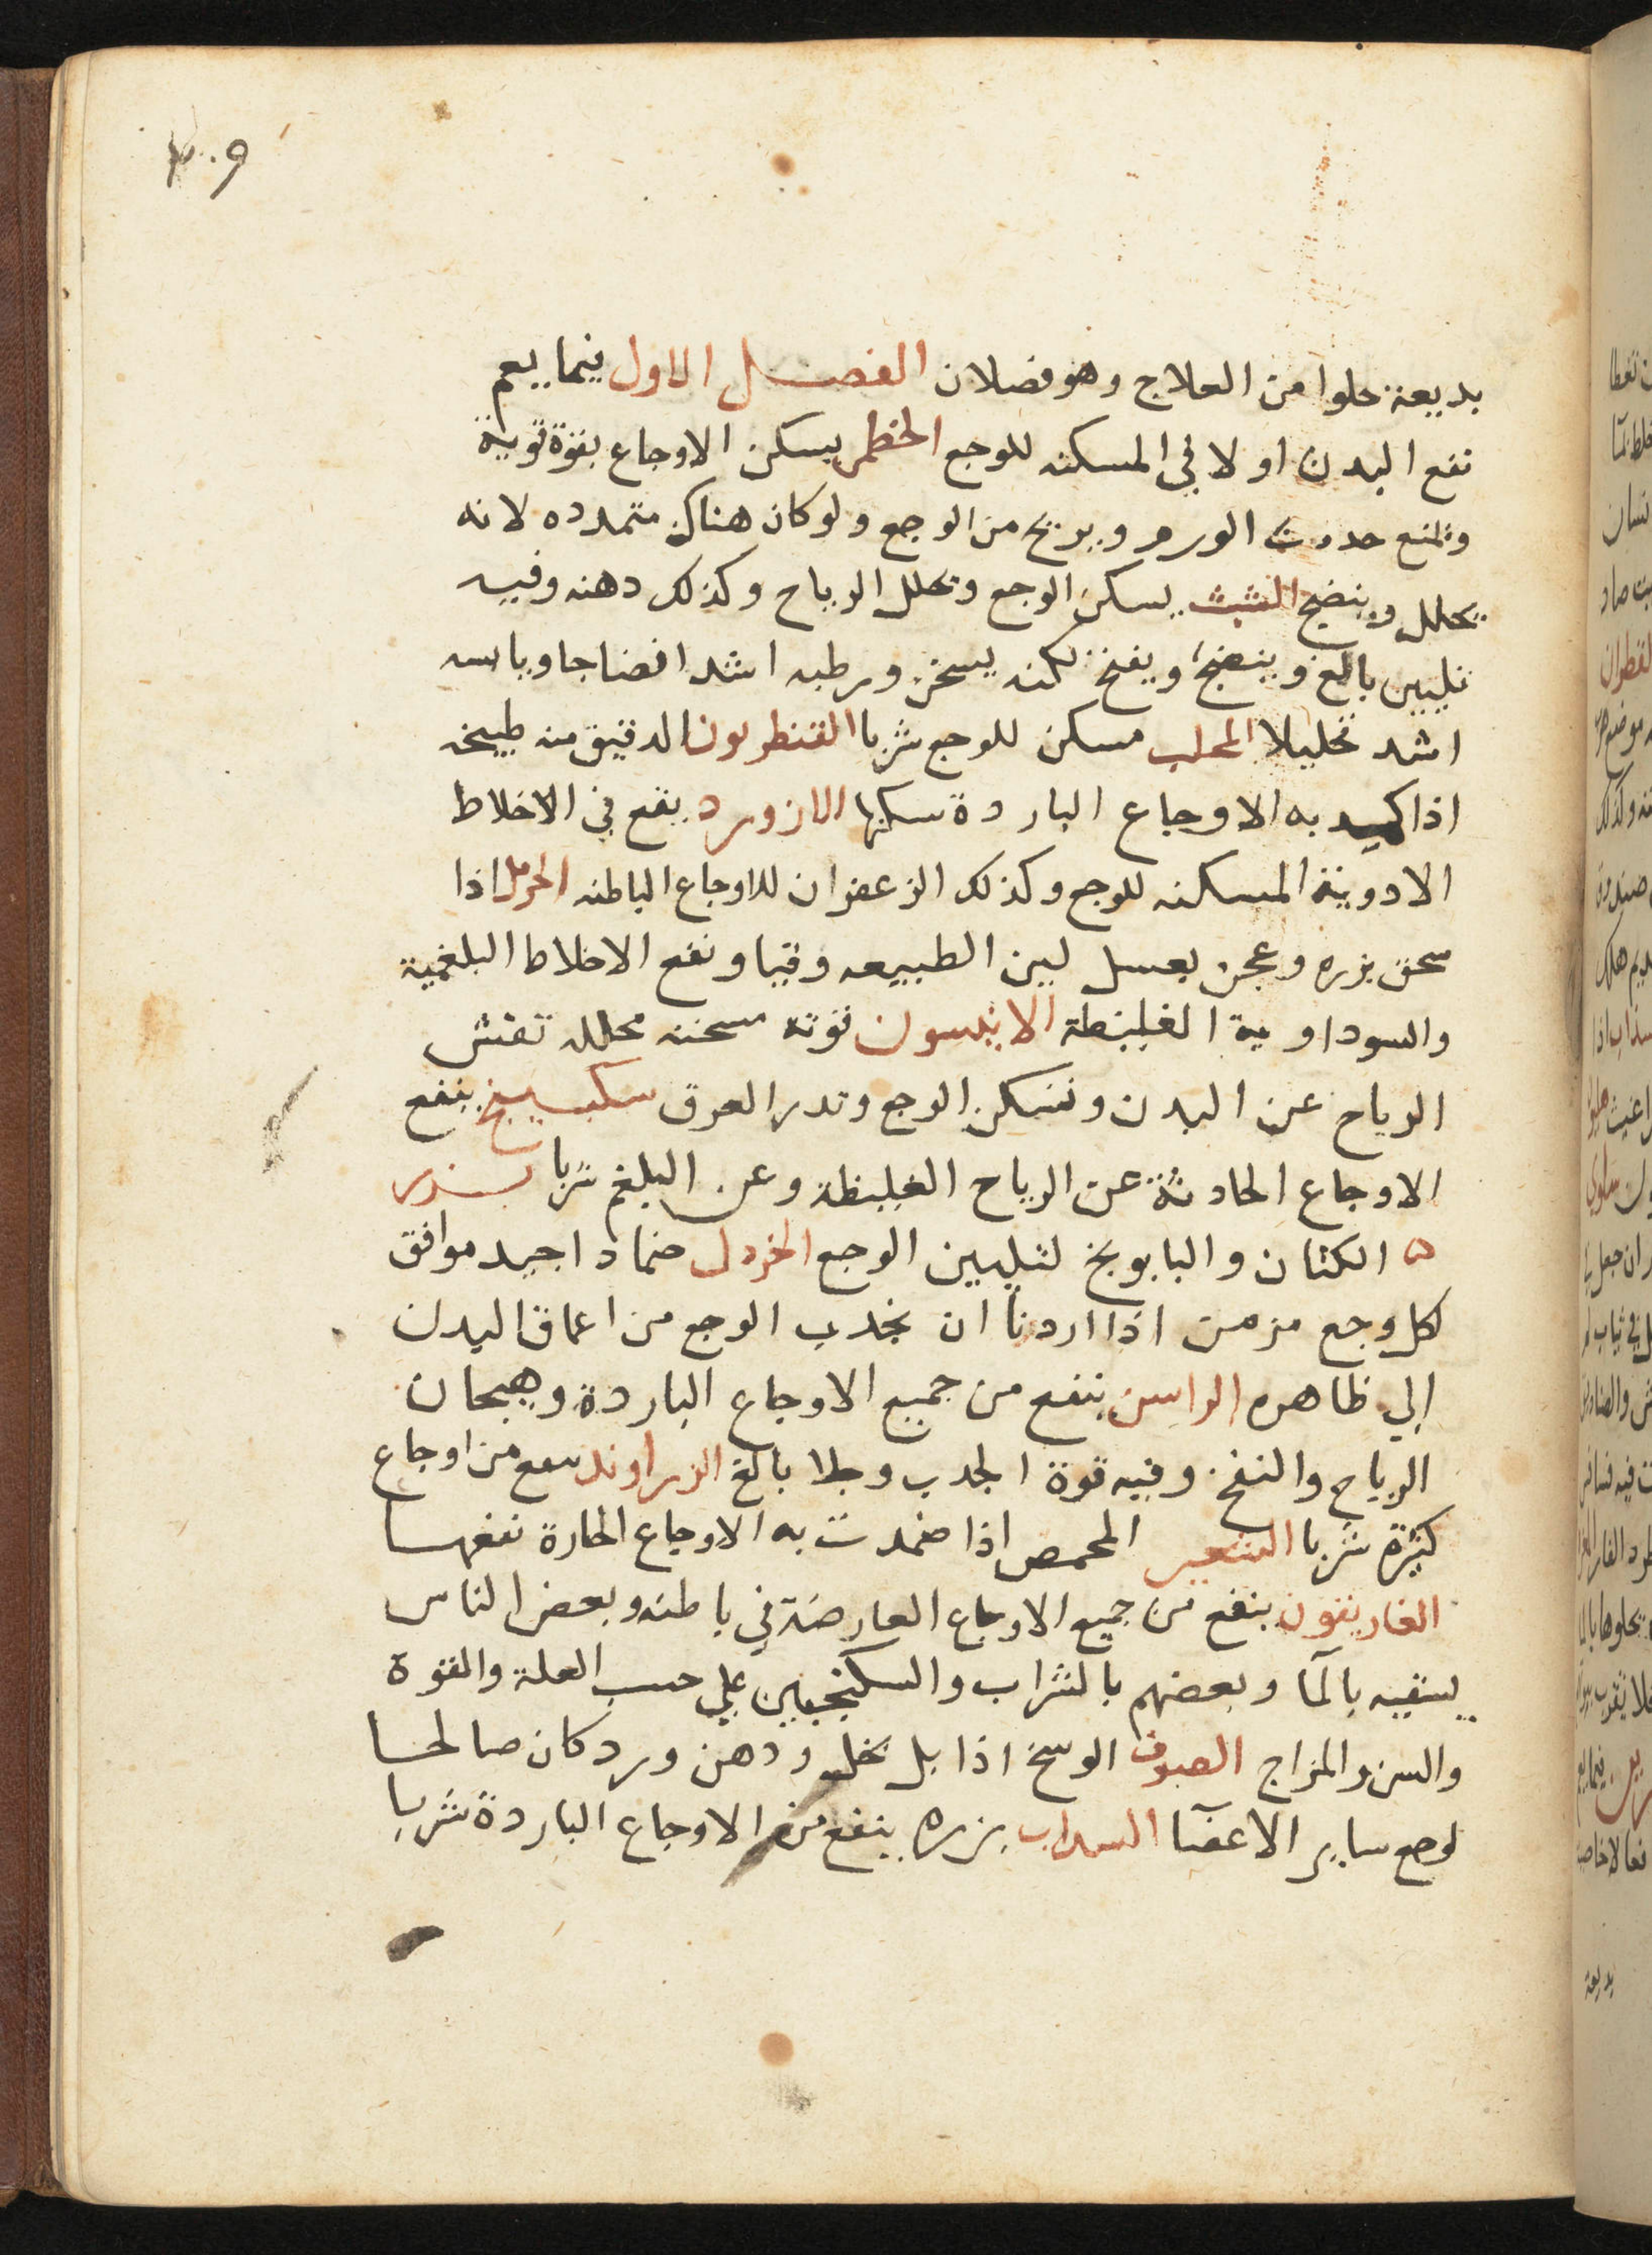 بديعة حلوا من العلاج وهو فصلان الفصل الاول فيما يعم
نفع البدن اولا في المسكنه للوجع الخطمى يسكن الاوجاع بقوة قوية
وتمنع حدوث الورم ويريح من الوجع ولو كان هناك متمدده لانه
يحلل وينضج الشبث يسكن الوجع ويحلل الرياح وكذلك دهنه وفيه
تليين بالغ وينضج ويفخ لكنه يسخن ورطبه اشد افضاجا ويابسه
اشد تحليلا المحلب مسكن للوجع شربا القنطريون الدقيق منه طبيخه
اذا كمد به الاوجاع الباردة سكنها اللازورد يقع في الاخلاط
الادوية المسكنه للوجع وكذلك الزعفران للاوجاع الباطنه الحرمل اذا
سحق بزره وعجن بعسل لين الطبيعه وقيا ونفع الاخلاط البلغمية
والسوداوية الغليظة الانيسون قوته مسخنه محلله تفش
الرياح عن البدن وتسكن الوجع وتدر العرق سكبينج ينفع
الاوجاع الحادثة عن الرياح الغليظة وعن البلغم شربا بزر
الكتان والبابونج لتليين الوجع الخردل ضمادا جيد موافق
لكل وجع مزمن اذا اردنا ان نجذب الوجع من اعماق البدن
الي ظاهره الراسن ينفع من جميع الاوجاع الباردة وهيجان
الرياح والنفخ وفيه قوة الجذب وجلا بالغ الزراوند ينفع من اوجاع
كثيرة شربا الشعير المحمص اذا ضمدت به الاوجاع الحارة نفعها
الغاريقون ينفع من جميع الاوجاع العارضة في باطنه وبعض الناس
يسقيه بالمآ وبعضهم بالشراب والسكنجبين علي حسب العلة والقوة
والسن والمزاج الصوف الوسخ اذا بل بخل ودهن ورد كان صالحا
لوجع ساير الاعضآ السداب بزره ينفع من الاوجاع الباردة شربا